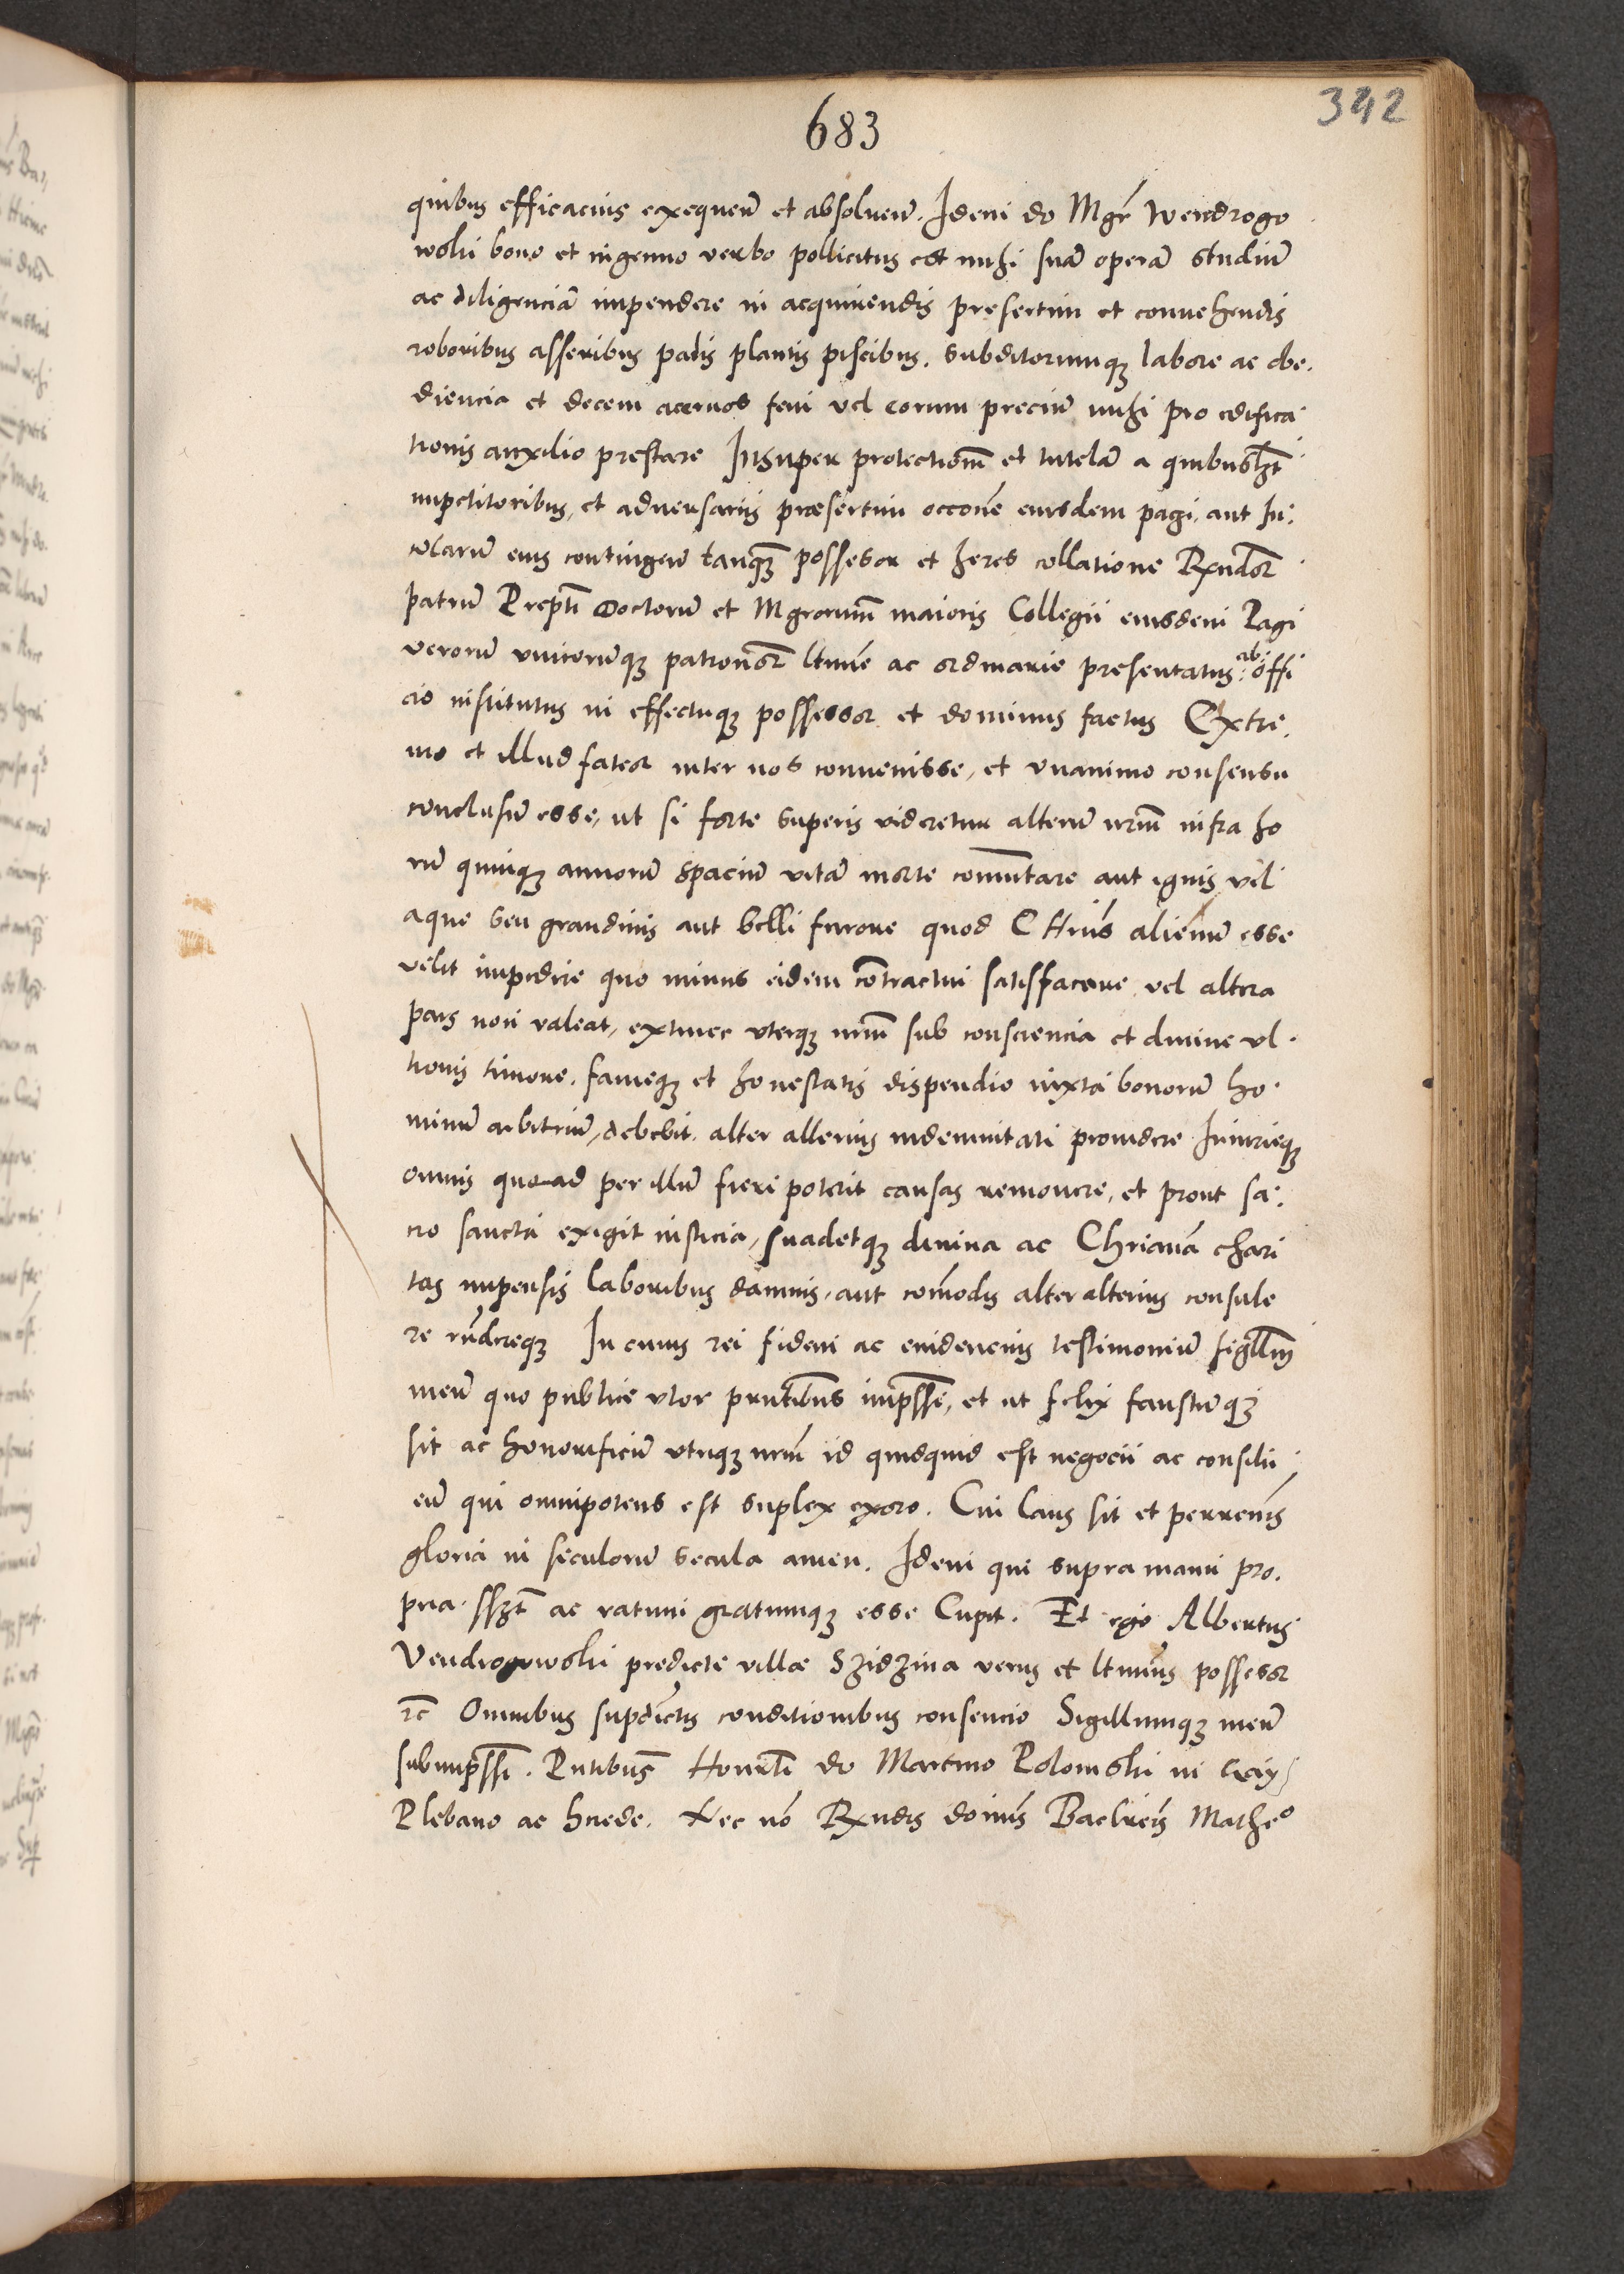 342
683
quibus efficacius exequerẽ et absoluerẽ. Idem do Mgr̃ Wendrogo
wski bono et ingenuo verbo pollicitus est mihi suã operã studiũ
ac diligenciã impendere in acquirendis presertim et conuehendis
roboribus asseribus palis plantis piscibus. subditorumqʒ labore ac obe.
diencia et decem aceruos feni vel eorum preciũ mihi pro edifica
tionis auxilio prestare Insuper protectionẽ et tutelã a quibuslʒt
impetitoribus, et aduersariis præsertim occone eiusdem pagi. aut In.
colarũ eius contingeñ tanqʒ possesor et heres collatione Rxndor
patrũ Prepti Doctorũ et Mgrorum maioris Collegii eiusdem Pagi
verorũ vnicorũqʒ patronor ltime ac ordinarie presentatus ab offi
cio institutus in effectuqʒ possessor et dominus factus Extre.
mo et illud fateor inter nos conuenisse, et vnanimo consensu
conclusũ esse, ut si forte superis videretur alterũ nrm infra ho
rũ quinqʒ annorũ spaciũ vitã morte comutare aut ignis vel
aque seu grandinis aut belli furore quod CHrus alienũ esse
velit impedire quo minus eidem contractui satisfacere vel altera
pars non valeat, extunc vterqʒ nrm sub consciencia et diuine vl.
tionis timore. fameqʒ et honestatis dispendio iuxta bonorũ ho.
minũ arbitriũ, debebit. alter alterius indemnitati prouidere Iniurieqʒ
omnis quoad per illũ fieri poterit causas remouere, et prout sa.
cro sancta exigit iusticia, suadetqʒ diuina ac Chriana chari
tas impensis laboribus damnis, aut comodis alter alterius consule
re rñdereqʒ In cuius rei fidem ac euidencius testimoniũ sigllm
meũ quo publice vtor prntibus impssi, et ut felix faustũqʒ
sit ac honorificũ vtriqʒ nrm id quidquid est negocii ac consilii
eũ qui omnipotens est suplex exoro. Cui laus sit et perrenis
gloria in seculorũ secula amen. Idem qui supra manu pro.
pria sszt ac ratum gratumqʒ esse Cupit. Et ego Albertus
Vendrogowski predicte villæ Szidzina verus et ltimus possesor
rc Omnibus supdictis conditionibus consencio Sigillumqʒ meũ
subimpssi. Pntibus Honrli do Martino Polomski in
Plebano ac herede. Nec nõ Rxndis doinis Baclreis Matheo